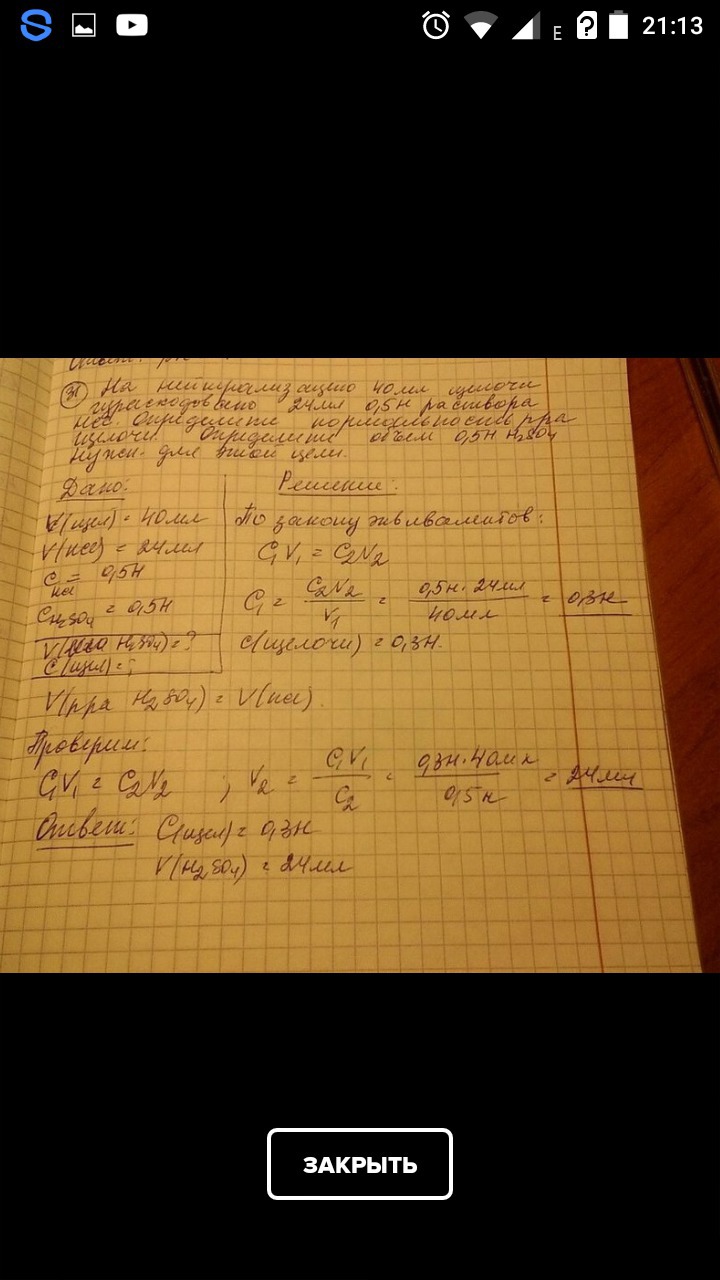 21:13
E
31 На нейтрализацию 40 мл щелочи
израсходовано 24мл 0,5Н раствора
HCl. Определите нормальность р-ра
щелочи. Определите объем 0,5Н H₂SO₄
нужн. для этой цели.
Дано:
Решение:
V(щел) = 40мл
V(HCl) = 24мл
C HCl = 0,5Н
C H₂SO₄ = 0,5Н
V(H₂SO₄) = ?
C(щел) = ?
По закону эквивалентов:
C₁V₁ = C₂V₂
C₁ = C₂V₂ / V₁ = 0,5н · 24мл / 40мл = 0,3н
C(щелочи) = 0,3Н.
V(рра H₂SO₄) = V(HCl).
Проверим:
C₁V₁ = C₂V₂ ; V₂ = C₁V₁ / C₂ = 0,3н · 40мл / 0,5н = 24мл
Ответ: C(щел) = 0,3Н
V(H₂SO₄) = 24мл
ЗАКРЫТЬ